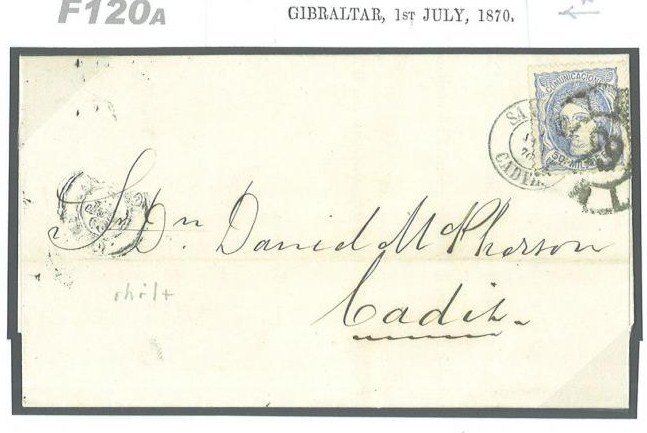 F120A
GIBRALTAR, 1ST JULY, 1870.
COMUNICACIONES
50 MIL
SA
CADIZ
Sr. Dn. David McPherson
Cadiz